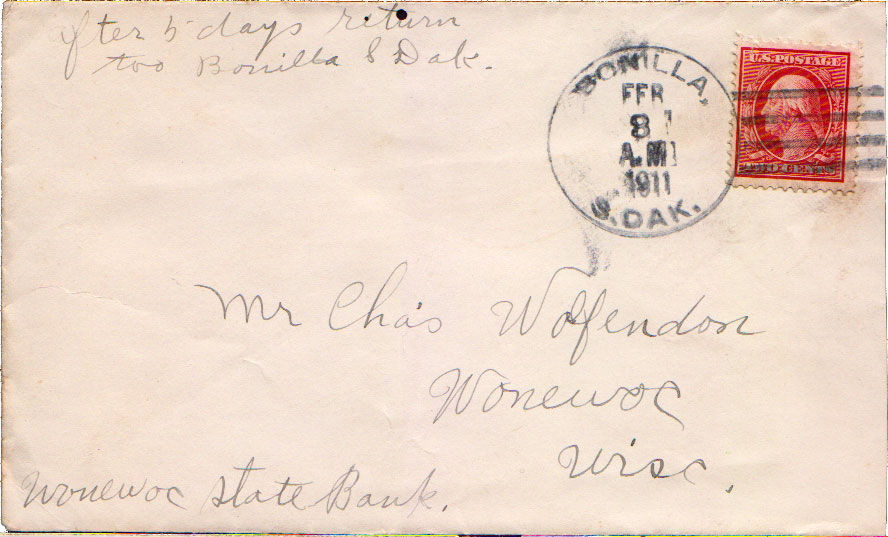 after 5 days return
too Bonilla S Dak.
BONILLA,
FEB
8
A.M
1911
S. DAK.
U.S. POSTAGE
TWO CENTS
Mr Cha's Wolfendon
Wonewoc
Wisc.
Wonewoc State Bank.